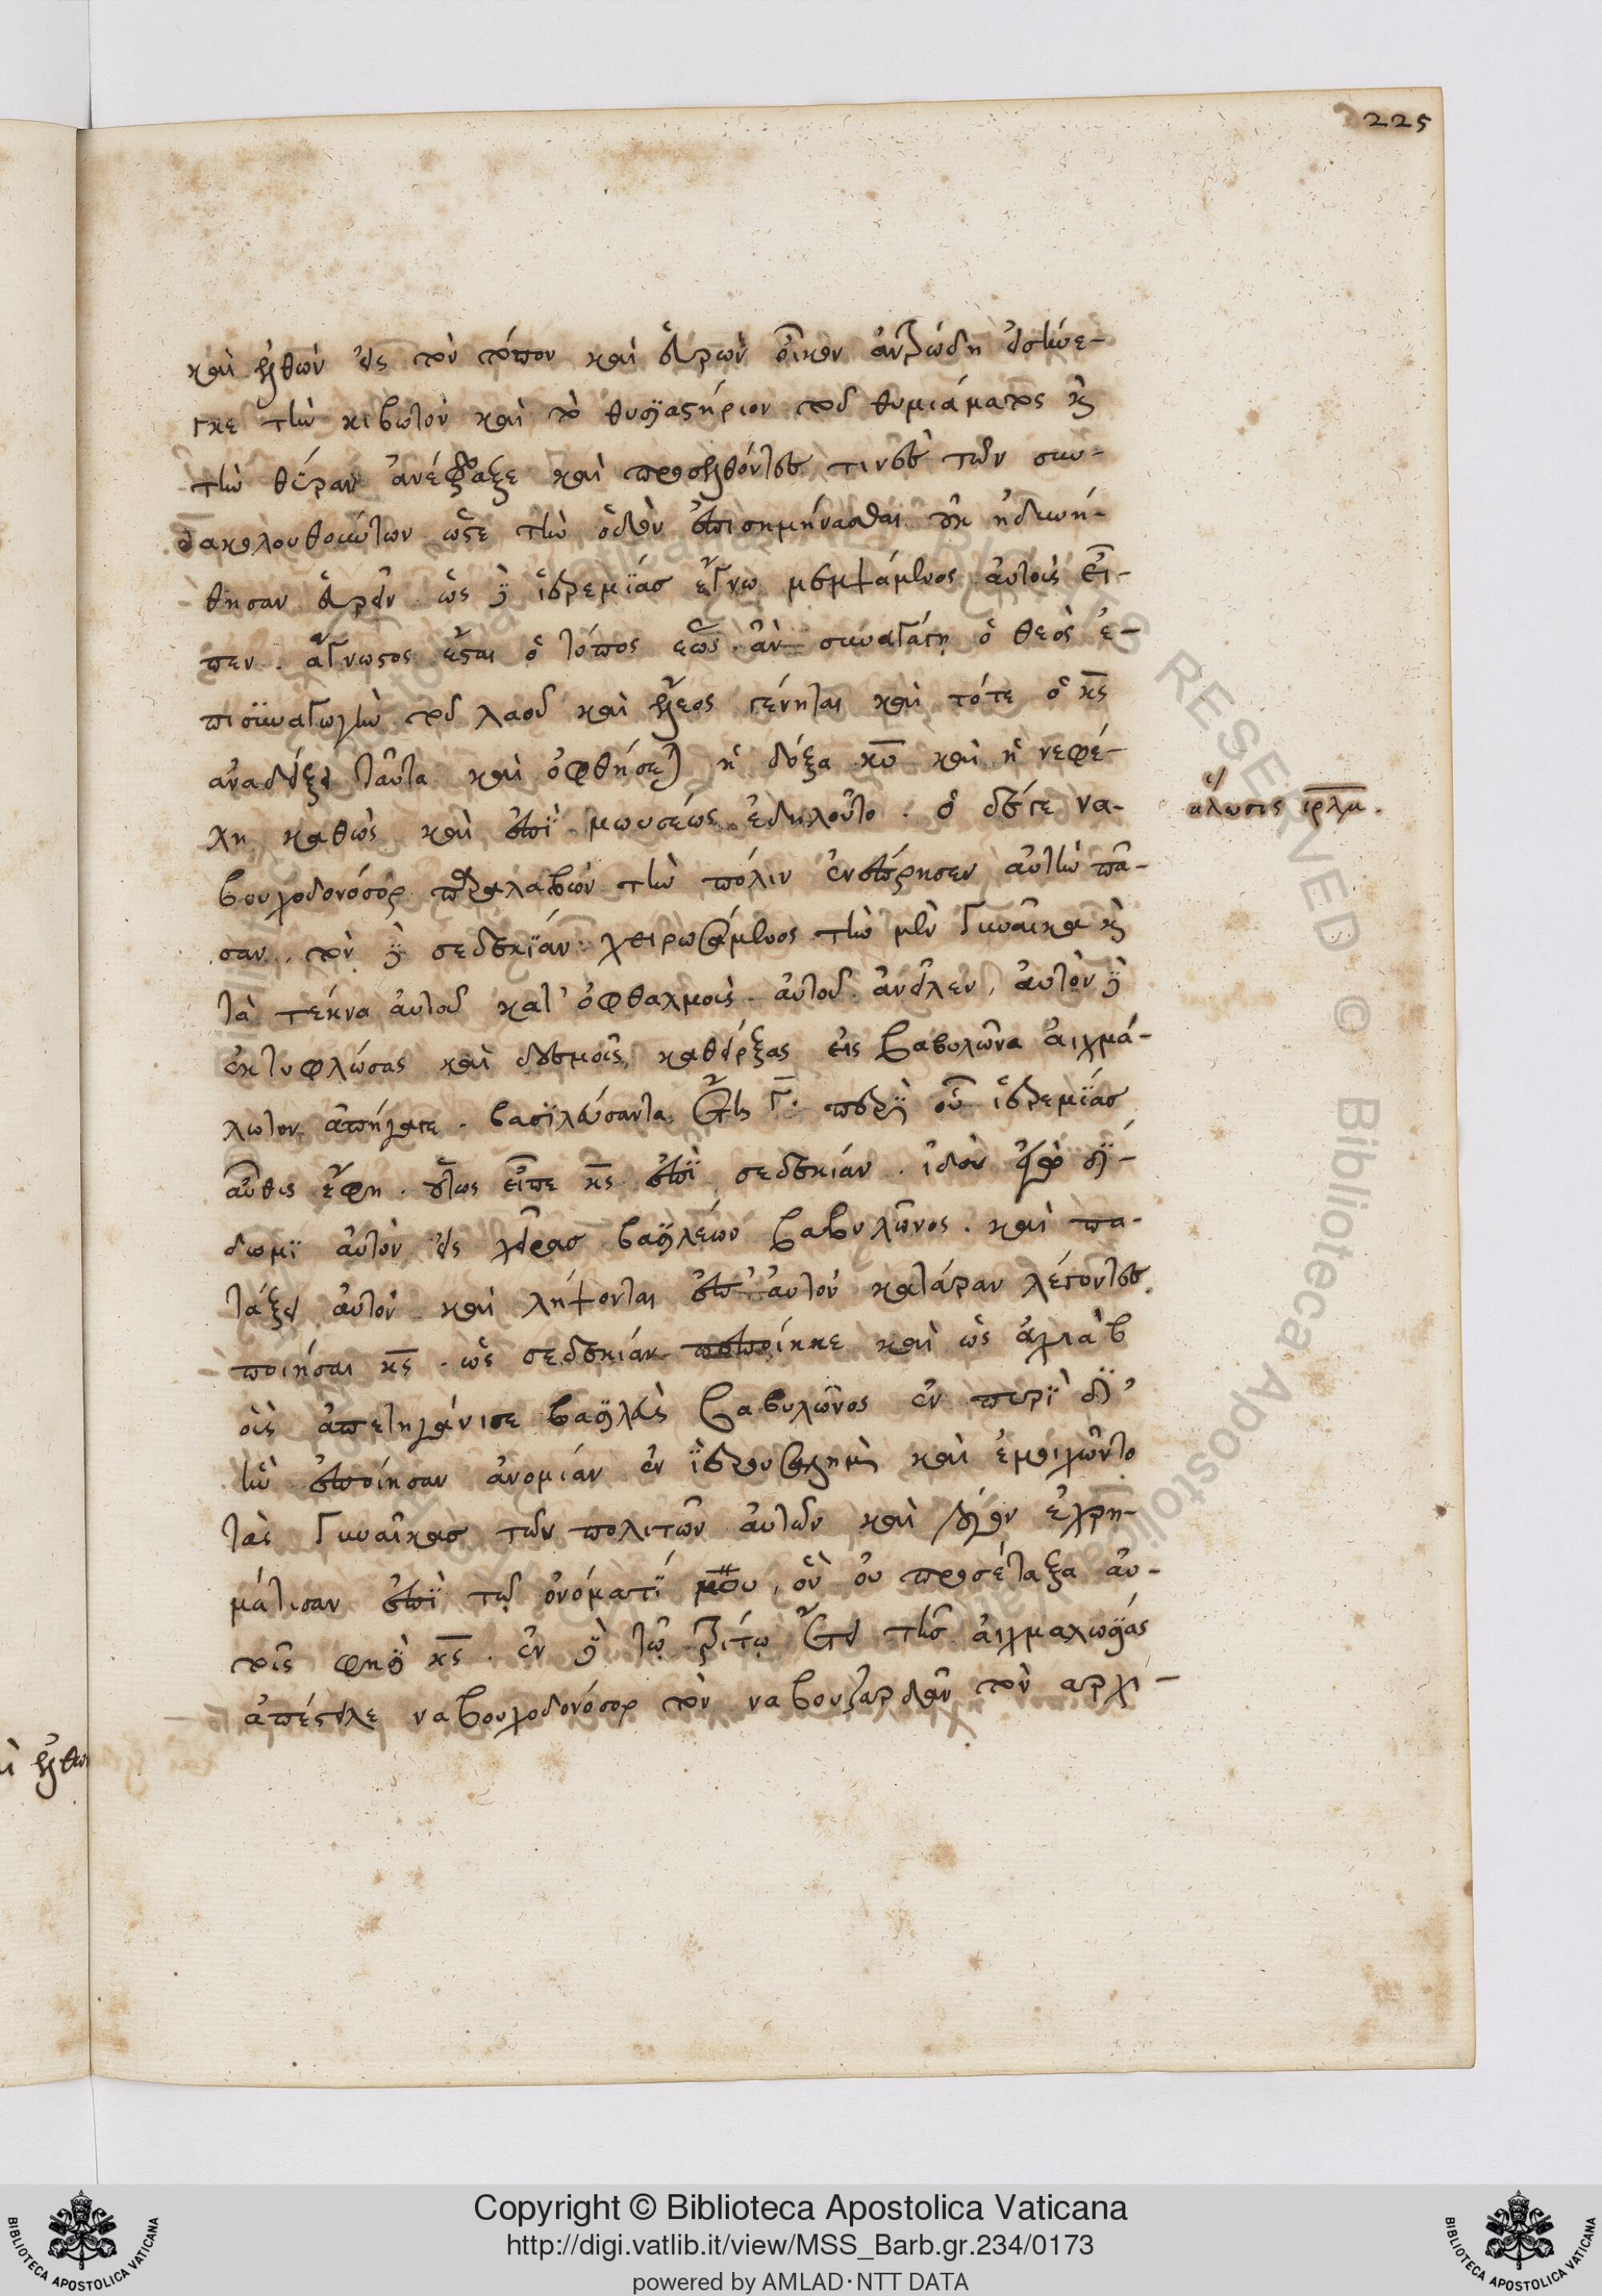 225
καὶ ἐλθὼν εἰς τὸν τόπον καὶ εὑρὼν οἶκον ἀντρώδη εἰσήνε-
γκε τὴν κιβωτὸν καὶ τὸ θυσιαστήριον τοῦ θυμιάματος κ
τὴν θύραν ἀνέφραξε καὶ προσελθόντες τινὲς τῶν συν-
ακολουθούντων ὥστε τὴν ὁδὸν ἐπισημήνασθαι οὐκ ἠδυνή-
θησαν εὑρεῖν. ὡς δὲ ἱερεμίας ἔγνω μεμψάμενος αὐτοῖς εἶ-
πεν. ἄγνωστος ἔσται ὁ τόπος ἕως ἂν συναγάγῃ ὁ θεὸς ἐ-
πισυναγωγὴν τοῦ λαοῦ καὶ ἔλεος γένηται καὶ τότε ὁ κς
ἀναδείξει ταῦτα καὶ ὀφθήσεται ἡ δόξα κυ καὶ ἡ νεφέ-
λη καθὼς καὶ ἐπὶ μωυσέως ἐδηλοῦτο. ὁ δέ γε να-
βουχοδονόσορ παραλαβὼν τὴν πόλιν ἐνεπύρησεν αὐτὴν πᾶ-
σαν. τὸν δὲ σεδεκίαν χειρωσάμενος τὴν μὲν γυναῖκα κ
τὰ τέκνα αὐτοῦ κατ' ὀφθαλμοὺς αὐτοῦ ἀνεῖλεν, αὐτὸν δὲ
ἐκτυφλώσας καὶ δεσμοῖς καθείρξας εἰς βαβυλῶνα αἰχμά-
λωτον ἀπήγαγε. βασιλεύσαντα ἔτη γ. περὶ οὗ ἱερεμίας
αὖθις ἔφη. οὕτως εἶπε κς ἐπὶ σεδεκίαν. ἰδοὺ ἐγὼ δί-
δωμι αὐτὸν εἰς χεῖρας βασιλέων βαβυλῶνος. καὶ πα-
τάξει αὐτὸν καὶ λήψονται ἐπ' αὐτὸν κατάραν λέγοντες.
ποιήσαι κς. ὡς σεδεκίαν πεποίηκε καὶ ὡς ἀχιὰβ
οὓς ἀπετηγάνισε βασιλεὺς βαβυλῶνος ἐν πυρὶ δι'
ἣν ἐποίησαν ἀνομίαν ἐν ἱερουσαλὴμ καὶ ἐμοιχῶντο
τὰς γυναῖκας τῶν πολιτῶν αὐτῶν καὶ λόγον ἐχρη-
μάτισαν ἐπὶ τῷ ὀνόματί μου, ὃν οὐ προσέταξα αὐ-
τοῖς φησὶ κς. ἐν δὲ τῷ τρίτῳ ἔτει τῆς αἰχμαλωσίας
ἀπέστειλε ναβουχοδονόσορ τὸν ναβουζαρδὰν τὸν αρχι-
ἅλωσις ιρλμ.